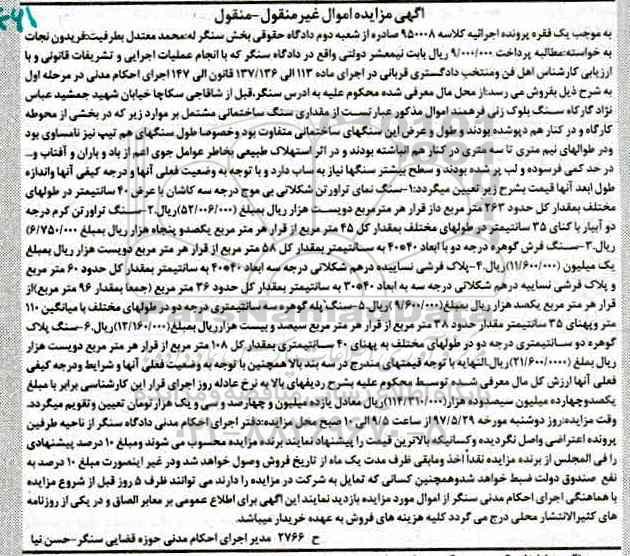 آگهی مزایده اموال غیر منقول-منقول
به موجب یک فقره پرونده اجرائیه کلاسه ۹۵۰۰۰۸ صادره از شعبه دوم دادگاه حقوقی بخش سنگر له:محمد معتدل بطرفیت:فریدون نجات
به خواسته:مطالبه پرداخت ۹/۰۰۰/۰۰۰ ریال بابت نیمعشر دولتی واقع در دادگاه سنگر که با انجام عملیات اجرایی و تشریفات قانونی و با
ارزیابی کارشناس اهل فن ومنتخب دادگستری قربانی در اجرای ماده ۱۱۳ الی ۱۳۷/۱۳۶ قانون الی ۱۴۷ اجرای احکام مدنی در مرحله اول
به شرح ذیل بفروش می رسد:از محل مال معرفی شده محکوم علیه به آدرس سنگر،قبل از شاقاجی سکاچا خیابان شهید جمشید عباس
نژاد کارگاه سنگ بلوک زنی فرهمند اموال مذکور عبارتست از مقداری سنگ ساختمانی مشتمل بر موارد زیر که در بخشی از محوطه
کارگاه و در کنار هم دپوشده بودند و طول و عرض این سنگهای ساختمانی متفاوت بود وخصوصا طول سنگهای هم تیپ نیز نامساوی بود
ودر طولهای نیم متری تا سه متری در کنار هم انباشته بودند و در اثر استهلاک طبیعی بخاطر عوامل جوی اعم از باد و باران و آفتاب و...
در حد کمی فرسوده و لب پر شده بودند و سطح بیشتر سنگها نیاز به ساب دارد و با توجه به وضعیت فعلی آنها و درجه کیفی آنها واندازه
طول ابعد آنها قیمت بشرح زیر تعیین میگردد:۱-سنگ نمای تراورتن شکلاتی بی موج درجه سه کاشان با عرض ۴۰ سانتیمتر در طولهای
مختلف بمقدار کل حدود ۲۶۳ متر مربع داز قرار هر متر مربع دویست هزار ریال بمبلغ (۵۲/۰۰۶/۰۰۰)ریال.۲-سنگ تراورتن کرم درجه
دو آبیار با کتای ۳۵ سانتیمتر در طولهای مختلف بمقدار کل ۴۵ متر مربع از قرار هر متر مربع یکصدو پنجاه هزار ریال بمبلغ (۶/۷۵۰/۰۰۰)
ریال.۳-سنگ فرش گوهره درجه دو با ابعاد ۴۰*۴۰ به سانتیمتر بمقدار کل ۵۸ متر مربع از قرار هر متر مربع دویست هزار ریال بمبلغ
یک میلیون (۱۱/۶۰۰/۰۰۰)ریال.۴-پلاک فرشی نساییده درهم شکلاتی درجه سه ابعاد ۴۰*۴۰ به سانتیمتر بمقدار کل حدود ۶۰ متر مربع
و پلاک فرشی نساییده درهم شکلاتی درجه سه به ابعاد ۴۰*۳۰ به سانتیمتر بمقدار کل حدود ۳۶ متر مربع (جمعا بمقدار ۹۶ متر مربع)از
قرار هر متر مربع یکصد هزار ریال بمبلغ(۹/۶۰۰/۰۰۰)ریال.۵-سنگ پله گوهره سه سانتیمتری درجه دو در طولهای مختلف با میانگین ۱۱۰
متر وپهنای ۳۵ سانتیمتر مقدار حدود ۳۸ متر مربع از قرار هر متر مربع سیصد و بیست هزارریال بمبلغ(۱۳/۱۶۰/۰۰۰)ریال.۶-سنگ پلاک
گوهره دو سانتیمتری درجه دو در طولهای مختلف به پهنای ۴۰ سانتیمتری بمقدار کل ۱۰۸ متر مربع از قرار هر متر مربع دویست هزار
ریال بمبلغ (۲۱/۶۰۰/۰۰۰۰)ریال.النهایه با توجه قیمتهای مندرج در سه بند بالا همچنین با توجه به وضعیت فعلی آنها و شرایط ودرجه کیفی
فعلی آنها ارزش کل مال معرفی شده توسط محکوم علیه بشرح ردیفهای بالا به نرخ عادله روز اجرای قرار این کارشناسی برابر با مبلغ
یکصدوچهارده میلیون سیصدوده هزار(۱۱۴/۳۱۰/۰۰۰)ریال معادل یازده میلیون و چهارصد و سی و یک هزار تومان تعیین وتقویم میگردد.
وقت مزایده:روز دوشنبه مورخه ۹۷/۵/۲۹ از ساعت ۹/۵ الی ۱۰ صبح مکان مزایده:دفتر اجرای احکام مدنی دادگاه سنگر از ناحیه طرفین
پرونده اعتراضی واصل نگردیده وکسانیکه بالاترین قیمت را پیشنهاد نمایند برنده مزایده محسوب می شوند ومبلغ ۱۰ درصد پیشنهادی
را فی المجلس از برنده مزایده نقداً اخذ ومابقی ظرف مدت یک ماه از تاریخ فروش وصول خواهد شد ودر غیر اینصورت مبلغ ۱۰ درصد به
نفع صندوق دولت ضبط خواهد شدوهمچنین کسانی که تمایل به شرکت در مزایده را دارند می توانند ظرف ۵ روز قبل از شروع مزایده
با هماهنگی اجرای احکام مدنی سنگر از اموال مورد مزایده بازدید نمایند این آگهی برای اطلاع عمومی بر معابر الصاق و در یکی از روزنامه
های کثیرالانتشار محلی درج می گردد کلیه هزینه های فروش به عهده خریدار میباشد.
ح ۲۷۶۶ مدیر اجرای احکام مدنی حوزه قضایی سنگر-حسن نیا